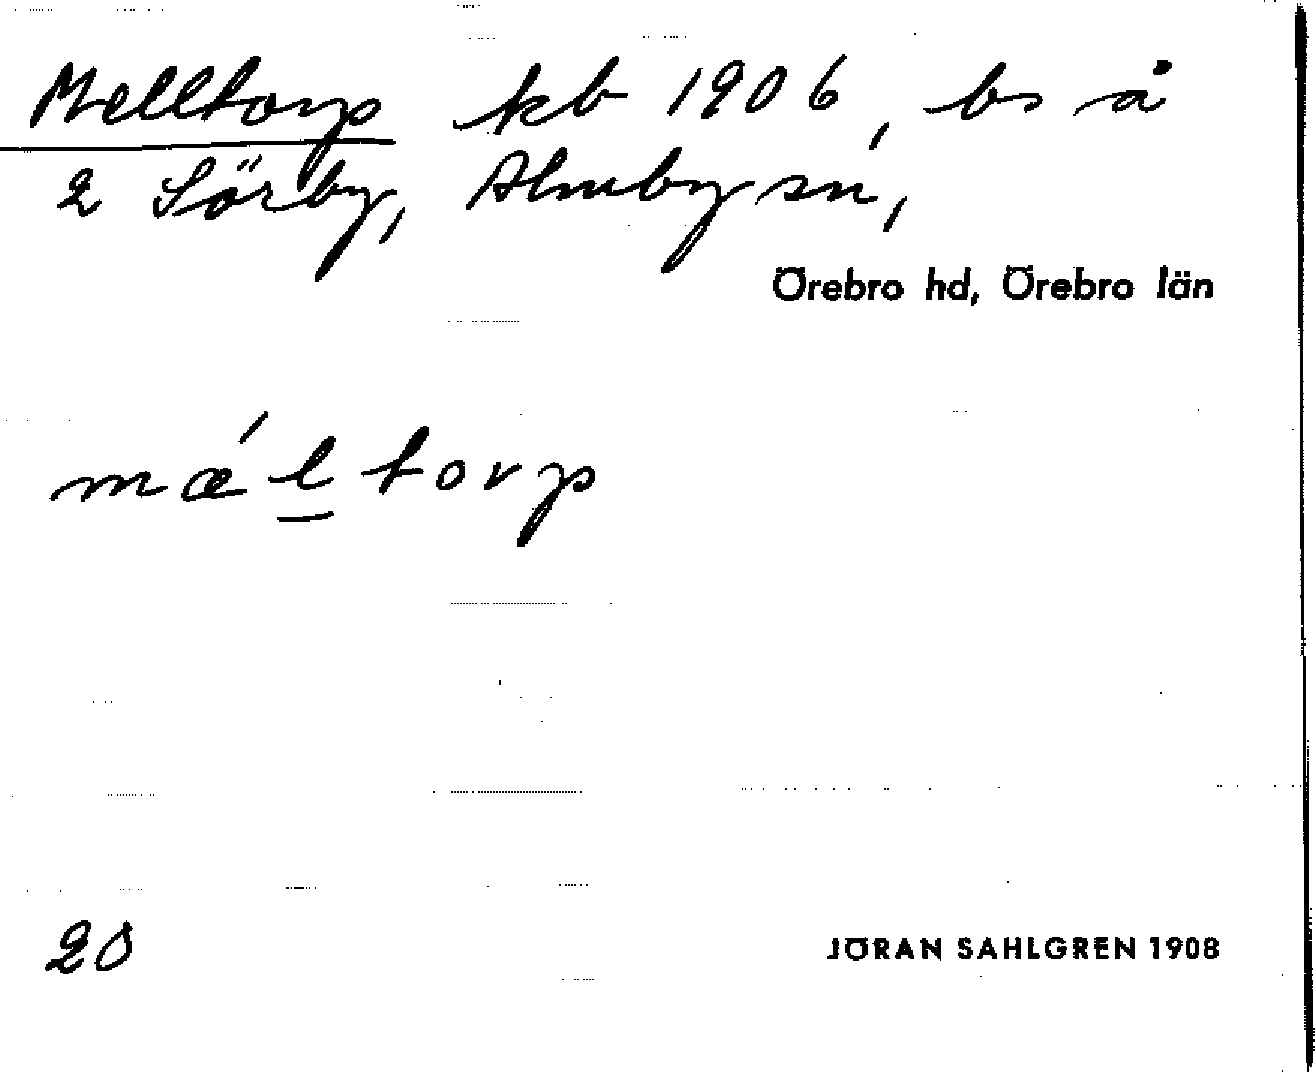 Melltorp kb 1906, bs å
2 Sörby, Almby sn,
Örebro hd, Örebro län
mǽltorp
20
JÖRAN SAHLGREN 1908